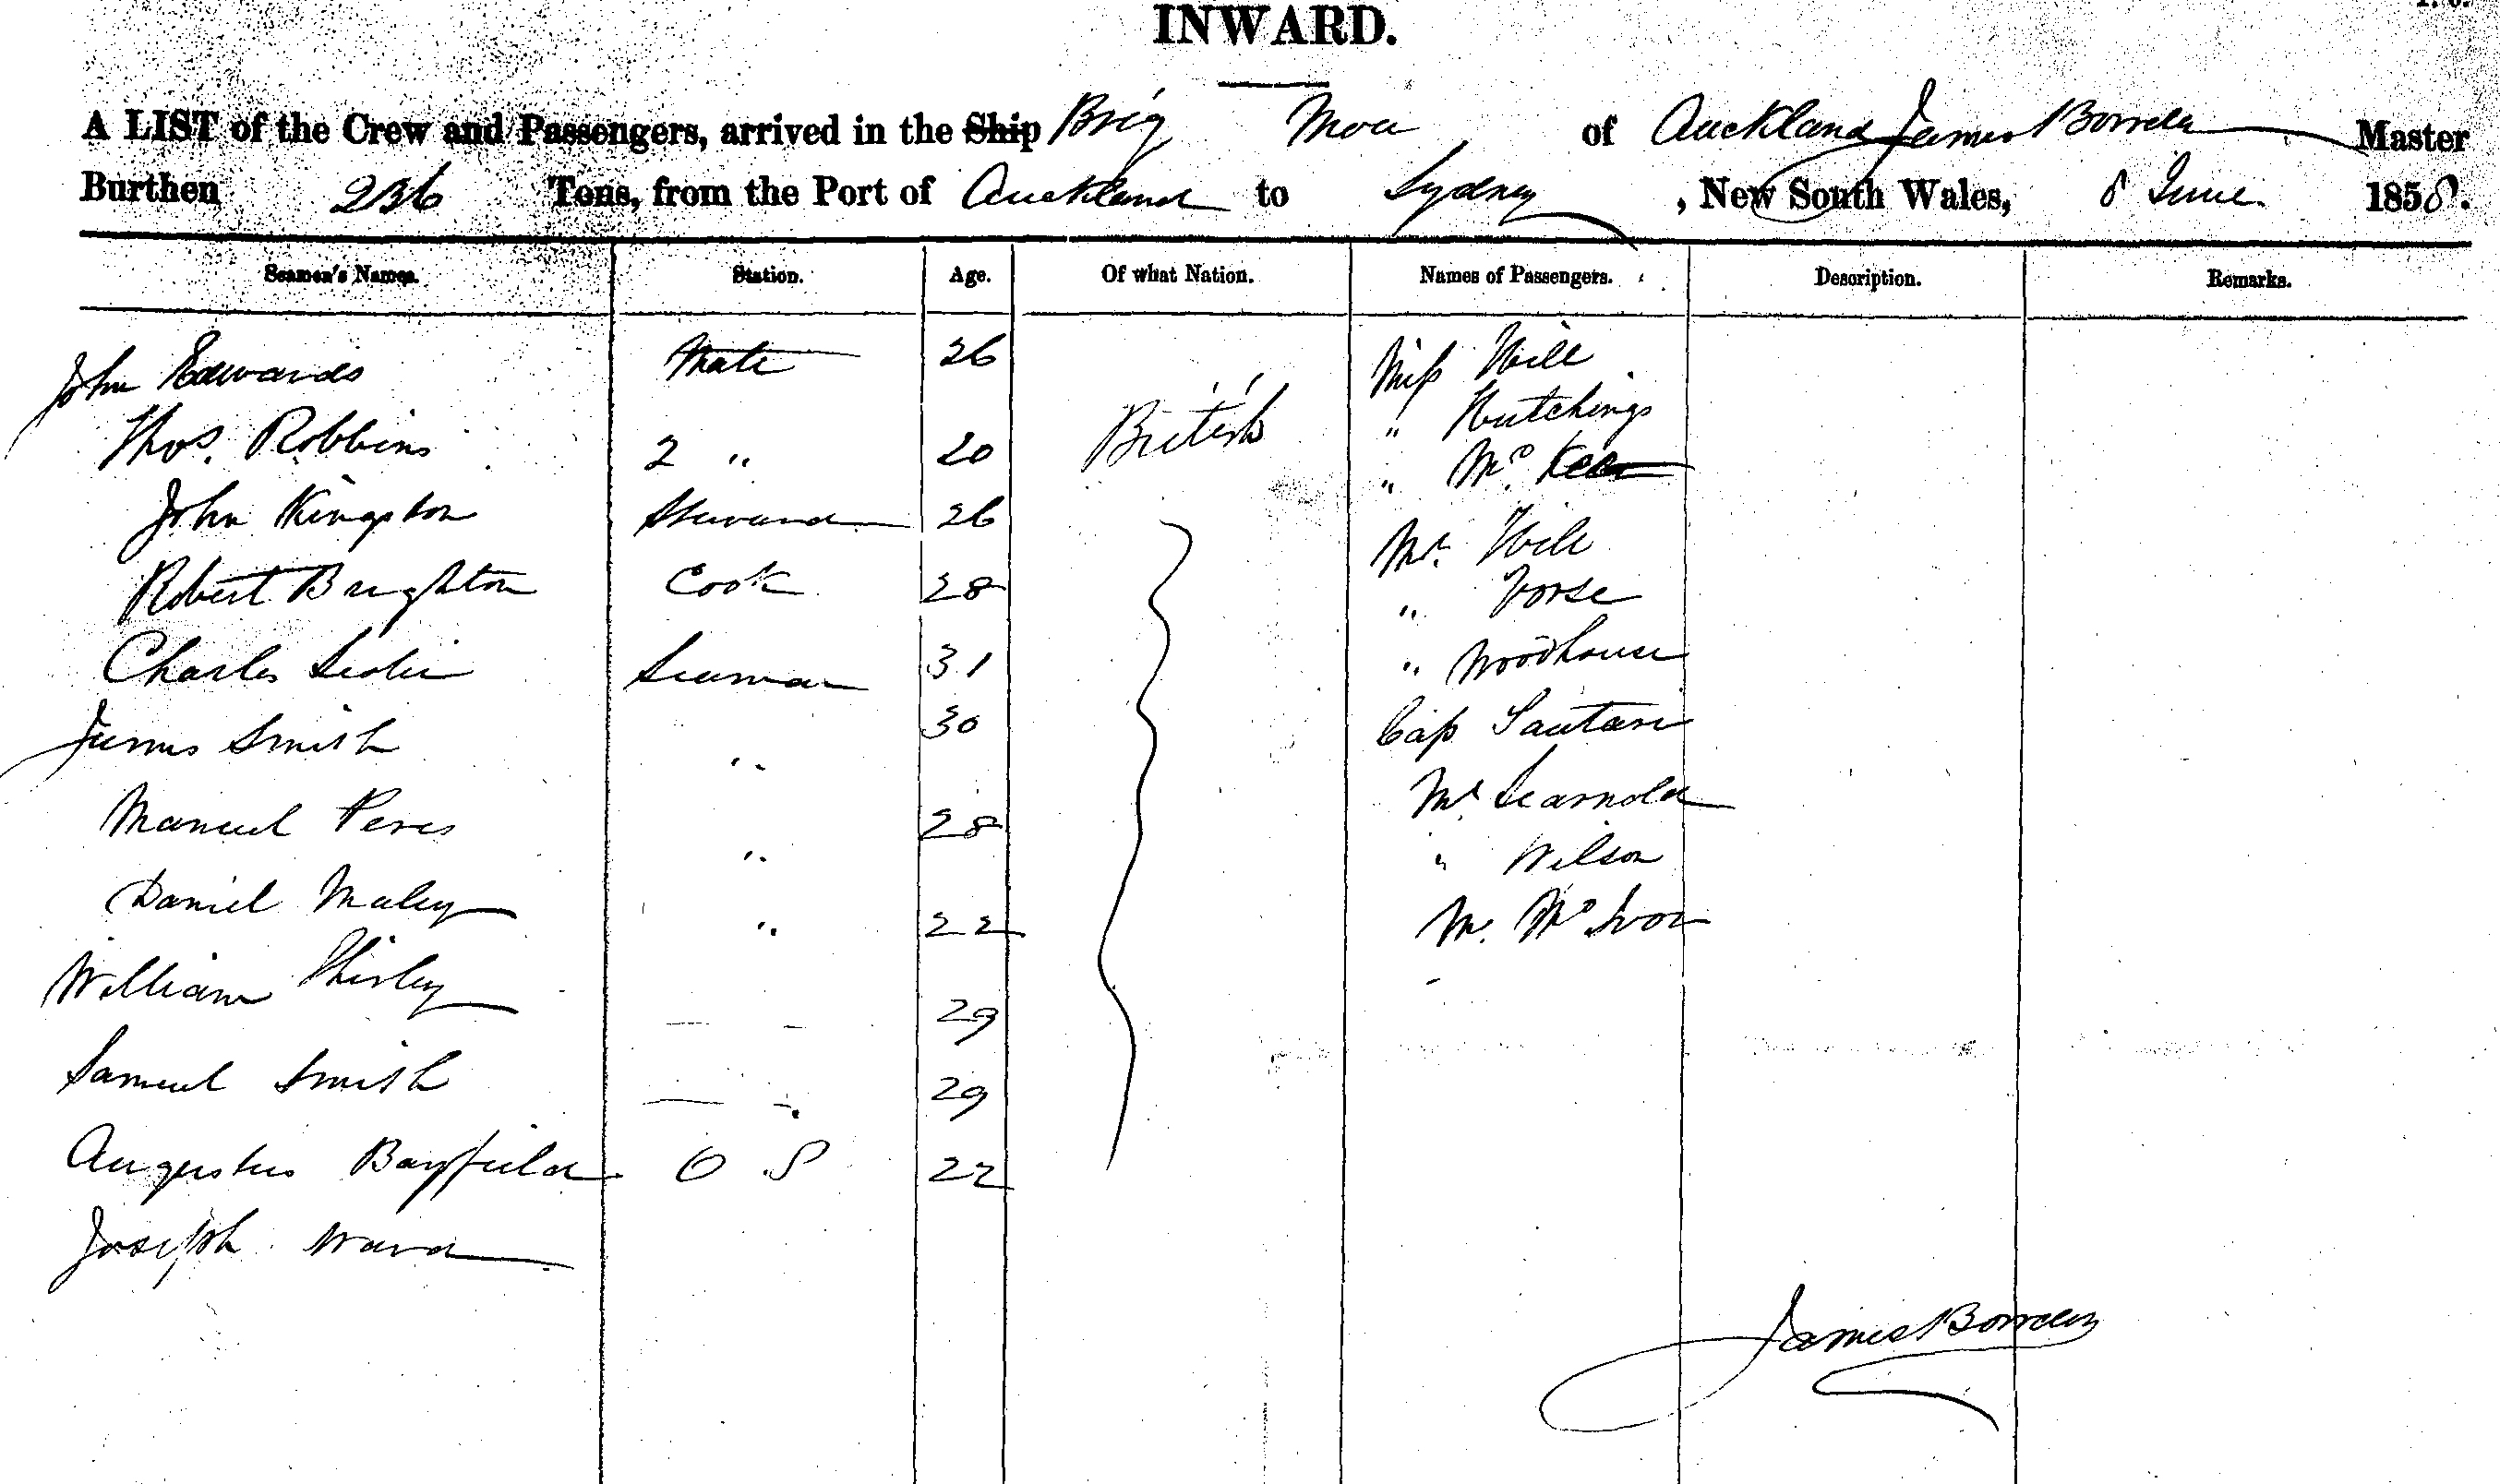 INWARD.
A LIST of the Crew and Passengers, arrived in the Ship Brig Moa of Auckland James Borrell Master
Burthen 236 Tons, from the Port of Auckland to Sydney, New South Wales, 8 June 1858.
Seamen's Names. Station. Age. Of what Nation. Names of Passengers. Description. Remarks.
John Edwards Mate 26 Miss Hill
British " Hutchings
Thos. Robbins 2 " 20 " Mc
John Kingston Steward 26 Mr. Hill
Robert Brighton Cook 28 " Vorse
Charles Leslie Seaman 31 " Woodhouse
James Smith " 30 Cap
Manuel Peres " 28 Mr Learnold
" Wilson
Daniel Maley " 22 Mr. McIvor
William Shirley — - 29
Samuel Smith — - 29
Augustus Bayfield O S 22
Joseph Ward
James Borrell